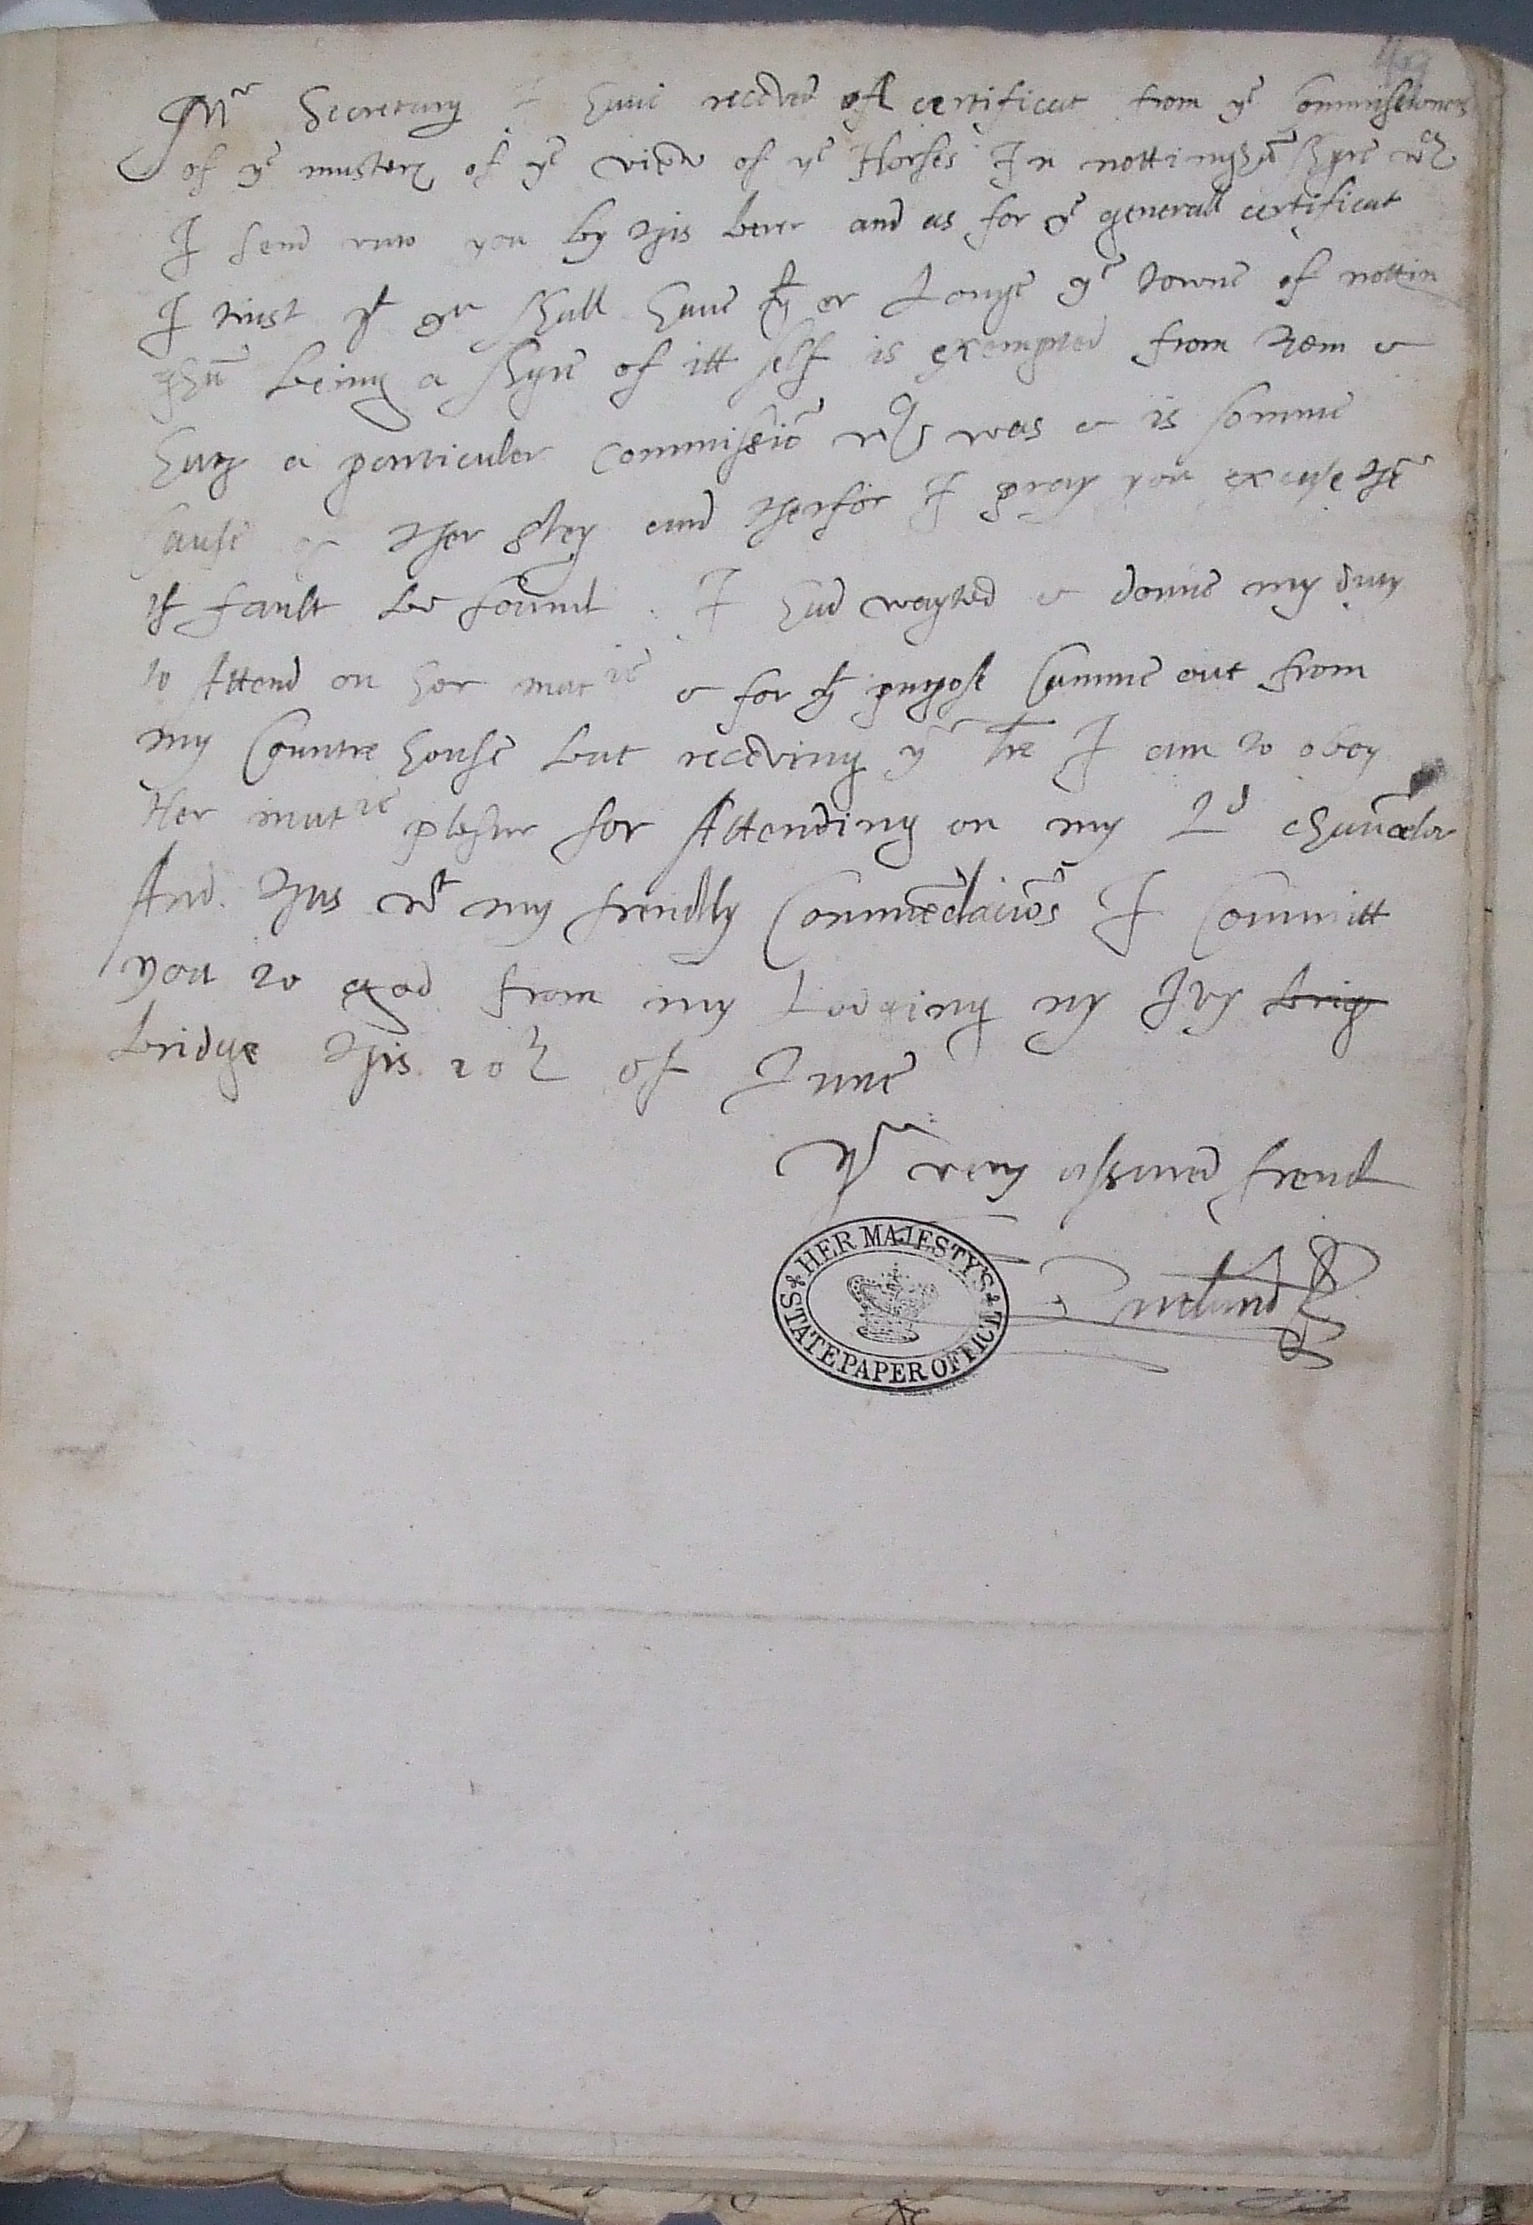 Mr Secretary I haue receved a certificat from ye Commissioners
of ye musters of ye view of ye Horses In nottinghā shyre wch
I send vnto you by this berer and as for ye generall certificat
I trust yt yu shall haue yt er Longe ye towne of nottin
ghā being a shyre of itt self is exempted from them &
hath a particuler Commissiō wch was & is somme
cause of ther stey and therfor I pray you excuse thē
if fault be found. I had wayted & donne my duty
to Attend on her matie & for yt purpose Cumme out from
my Countre house but receving yr lre I am to obey
Her maties plesur for Attending on my Ld chauncelor
And thus wt my frendly Commēdaciōs I Committ
you to god from my Lodging ny Ivy brig
bridge this 20th of June
Yr very assured frend
Rutland
HER MAJESTY'S
STATE PAPER OFFICE